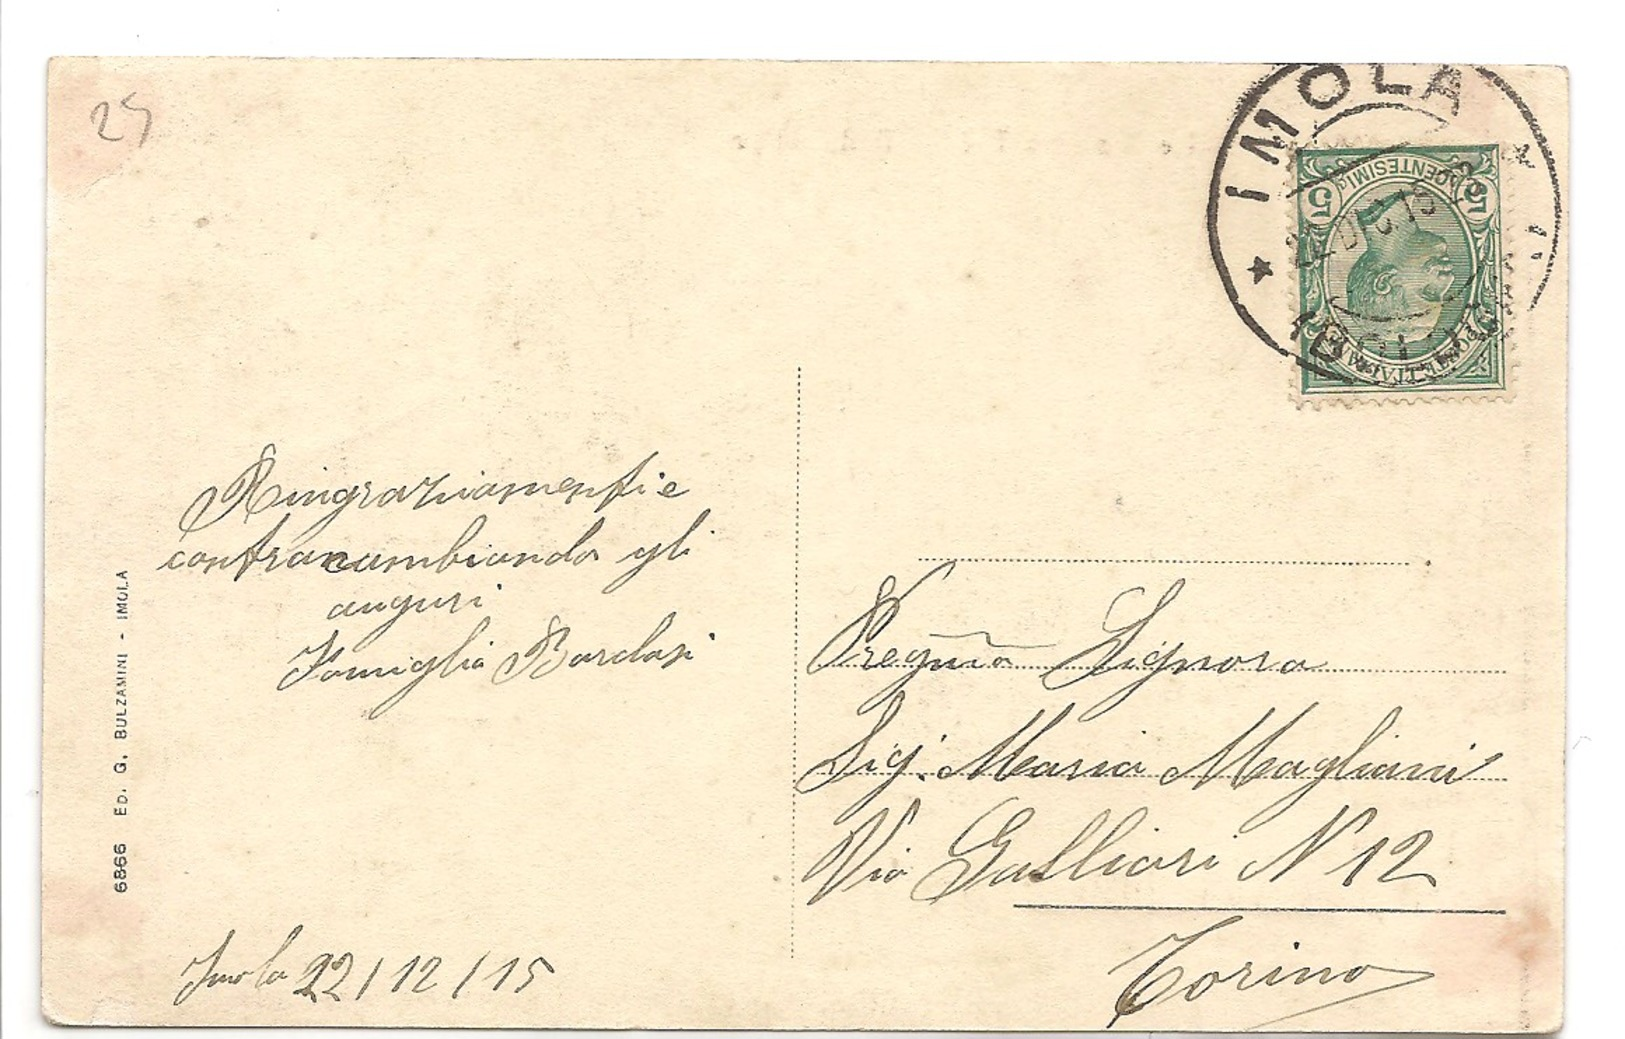 25
IMOLA
22 DIC 15
CENTESIMI
5 5
POSTE ITALIANE
Ringraziamenti e
contracambiando gli
auguri
Famiglia Bardasi
Imola 22/12/15
6866 ED. G. BULZAMINI - IMOLA
Pregma Signora
Sig. Maria Magliani
Via Galliari N 12
Torino